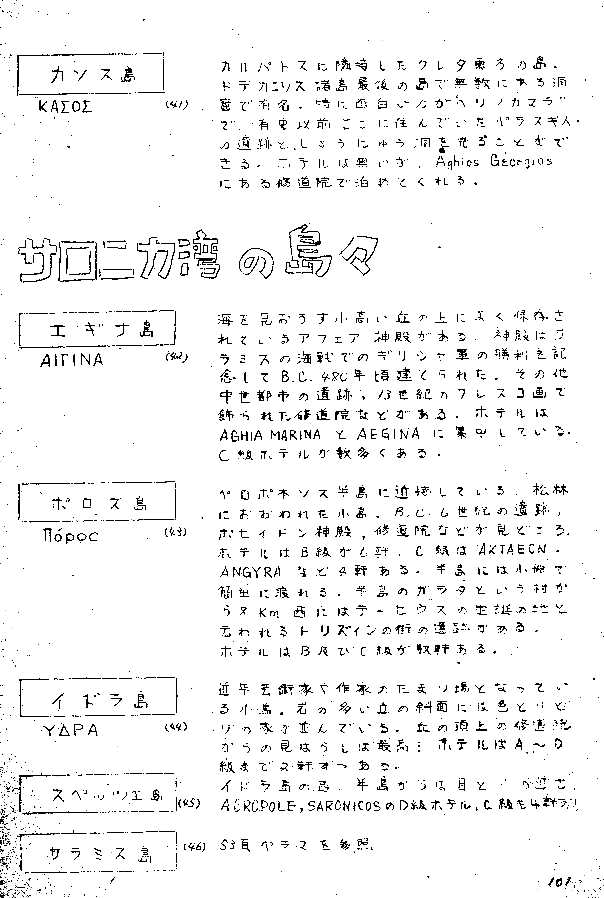 カソス島
ΚΑΣΟΣ (41)
カルパトスに隣接したクレタ東方の島。
ドデカニソス諸島最後の島で無数にある洞
窟で有名。特に面白いのがヘリノカマラ
で、有史以前ここに住んでいたペラスギ人
の遺跡としょうにゅう洞を見ることがで
きる。ホテルは無いが、Aghios Georgios
にある修道院で泊めてくれる。
サロニカ湾の島々
エギナ島
ΑΙΓΙΝΑ (42)
海を見おろす小高い丘の上に良く保存さ
れているアフェア神殿がある。神殿はサ
ラミスの海戦でのギリシャ軍の勝利を記
念してB.C.480年頃建てられた。その他
中世都市の遺跡、13世紀のフレスコ画で
飾られた修道院などがある。ホテルは
AGHIA MARINAとAEGINAに集中している。
C級ホテルが数多くある。
ポロス島
Πόρος (43)
ペロポネソス半島に近接している、松林
におおわれた小島。B.C.6世紀の遺跡、
ポセイドン神殿、修道院などが見どころ。
ホテルはB級が6軒、C級はAKTAEON、
ANGYRAなど4軒ある。半島には小船で
簡単に渡れる。半島のガラタという村か
ら8Km西にはテーセウスの生誕の地と
言われるトリズィンの街の遺跡がある。
ホテルはB及びC級が数軒ある。
イドラ島
ΥΔΡΑ (44)
近年芸術家や作家のたまり場となってい
る小島。岩の多い丘の斜面には色とりど
りの家が並んでいる。丘の頂上の修道院
からの見はらしは最高!ホテルはA〜D
級まで2軒ずつある。
スペッツェ島 (45)
イドラ島の島、半島からは目と
ACROPOLE, SARONICOSのD級ホテル、C級も4軒
サラミス島 (46)
53頁を参照。
101